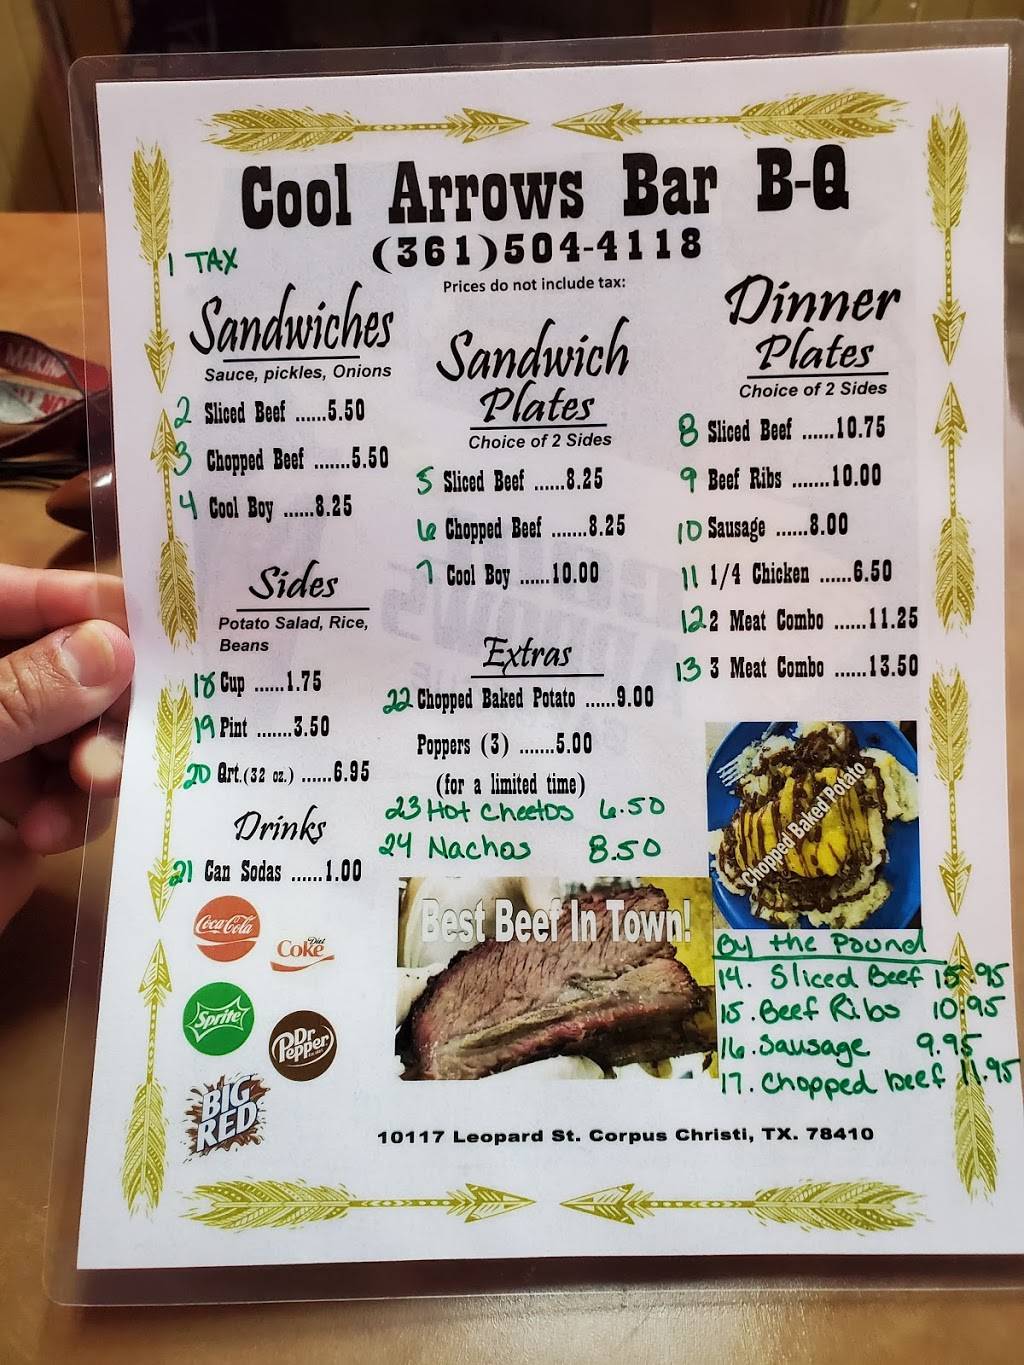 Cool Arrows Bar B-Q
(361)504-4118
1 TAX
Prices do not include tax:
Sandwiches
Sauce, pickles, Onions
2 Sliced Beef ......5.50
3 Chopped Beef .......5.50
4 Cool Boy ......8.25
Sides
Potato Salad, Rice,
Beans
18 Cup ......1.75
19 Pint .......3.50
20 Qrt.(32 oz.) ......6.95
Drinks
21 Can Sodas ......1.00
Coca-Cola
Diet
Coke
Sprite
Dr
Pepper
BIG
RED
Sandwich
Plates
Choice of 2 Sides
5 Sliced Beef ......8.25
6 Chopped Beef .......8.25
7 Cool Boy ......10.00
Extras
22 Chopped Baked Potato ......9.00
Poppers (3) .......5.00
(for a limited time)
23 Hot Cheetos 6.50
24 Nachos 8.50
Best Beef In Town!
Dinner
Plates
Choice of 2 Sides
8 Sliced Beef ......10.75
9 Beef Ribs .......10.00
10 Sausage ......8.00
11 1/4 Chicken ......6.50
12 2 Meat Combo ......11.25
13 3 Meat Combo ......13.50
Chopped Baked Potato
By the Pound
14. Sliced Beef 15.95
15. Beef Ribs 10.95
16. Sausage 9.95
17. Chopped beef 11.95
10117 Leopard St. Corpus Christi, TX. 78410